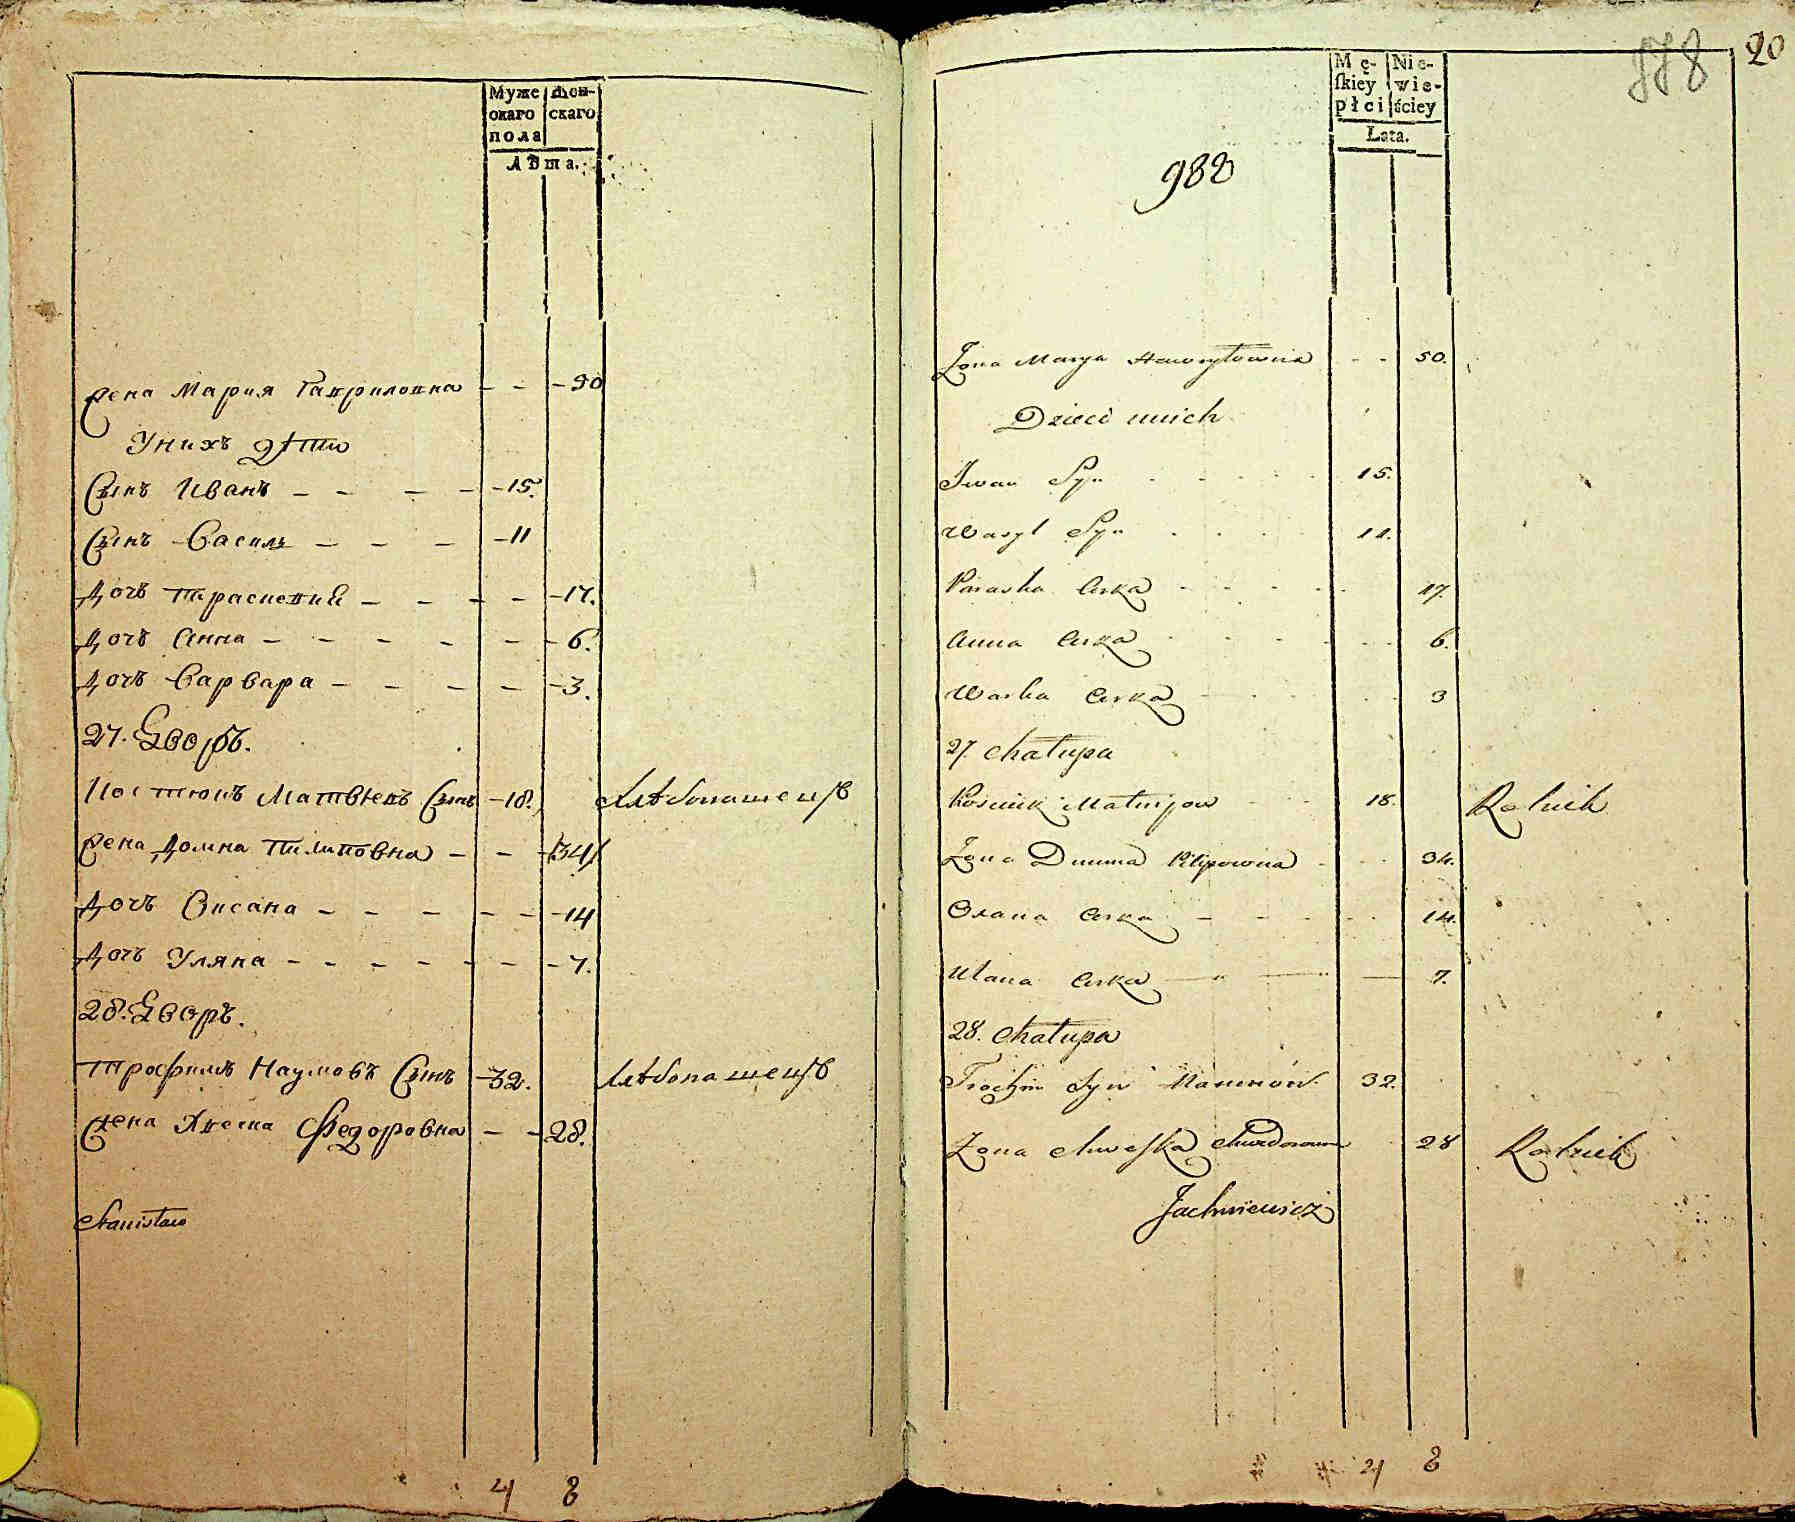 Муже Жен-
скаго скаго
пола
Лѣта.
Жена Мария Гавриловна - - - 50
Унихъ дѣти
Сынъ Иванъ - - - - - 15.
Сынъ Василь - - - - 11
Дочь Прасковия - - - - - 17.
Дочь Анна - - - - - - - 6.
Дочь Варвара - - - - - 3.
27. Дворъ.
Костюкъ Матвѣевъ Сынъ - 18. Хлѣбопашецъ
Жена Домна Пилиповна - - - 34
Дочь Оксана - - - - - - 14
Дочь Уляна - - - - - - - 7.
28. Дворъ.
Трофимъ Наумовъ Сынъ - 32. Хлѣбопашецъ
Жена Хвеска Федоровна - - 28.
Stanisław
4 8
20
988
Mę- Nie-
ſkiey wie-
płci ściey
Lata.
Żona Marya Hawryłowna - - 50.
Dzieci unich
Iwan Syn 15.
Wasyl Syn 11.
Paraska Curka 17.
Anna Curka 6.
Warka Curka 3
27. Chałupa
Kościuk Matwijow 18. Rolnik
Żona Dumna Pilipowna 34.
Oxana Curka 14.
Ulana Curka 7.
28. Chałupa
Trochim Syn Naumów 32.
Żona Chweśka Chwedorowna 28 Rolnik
Jachniewicz
4 8